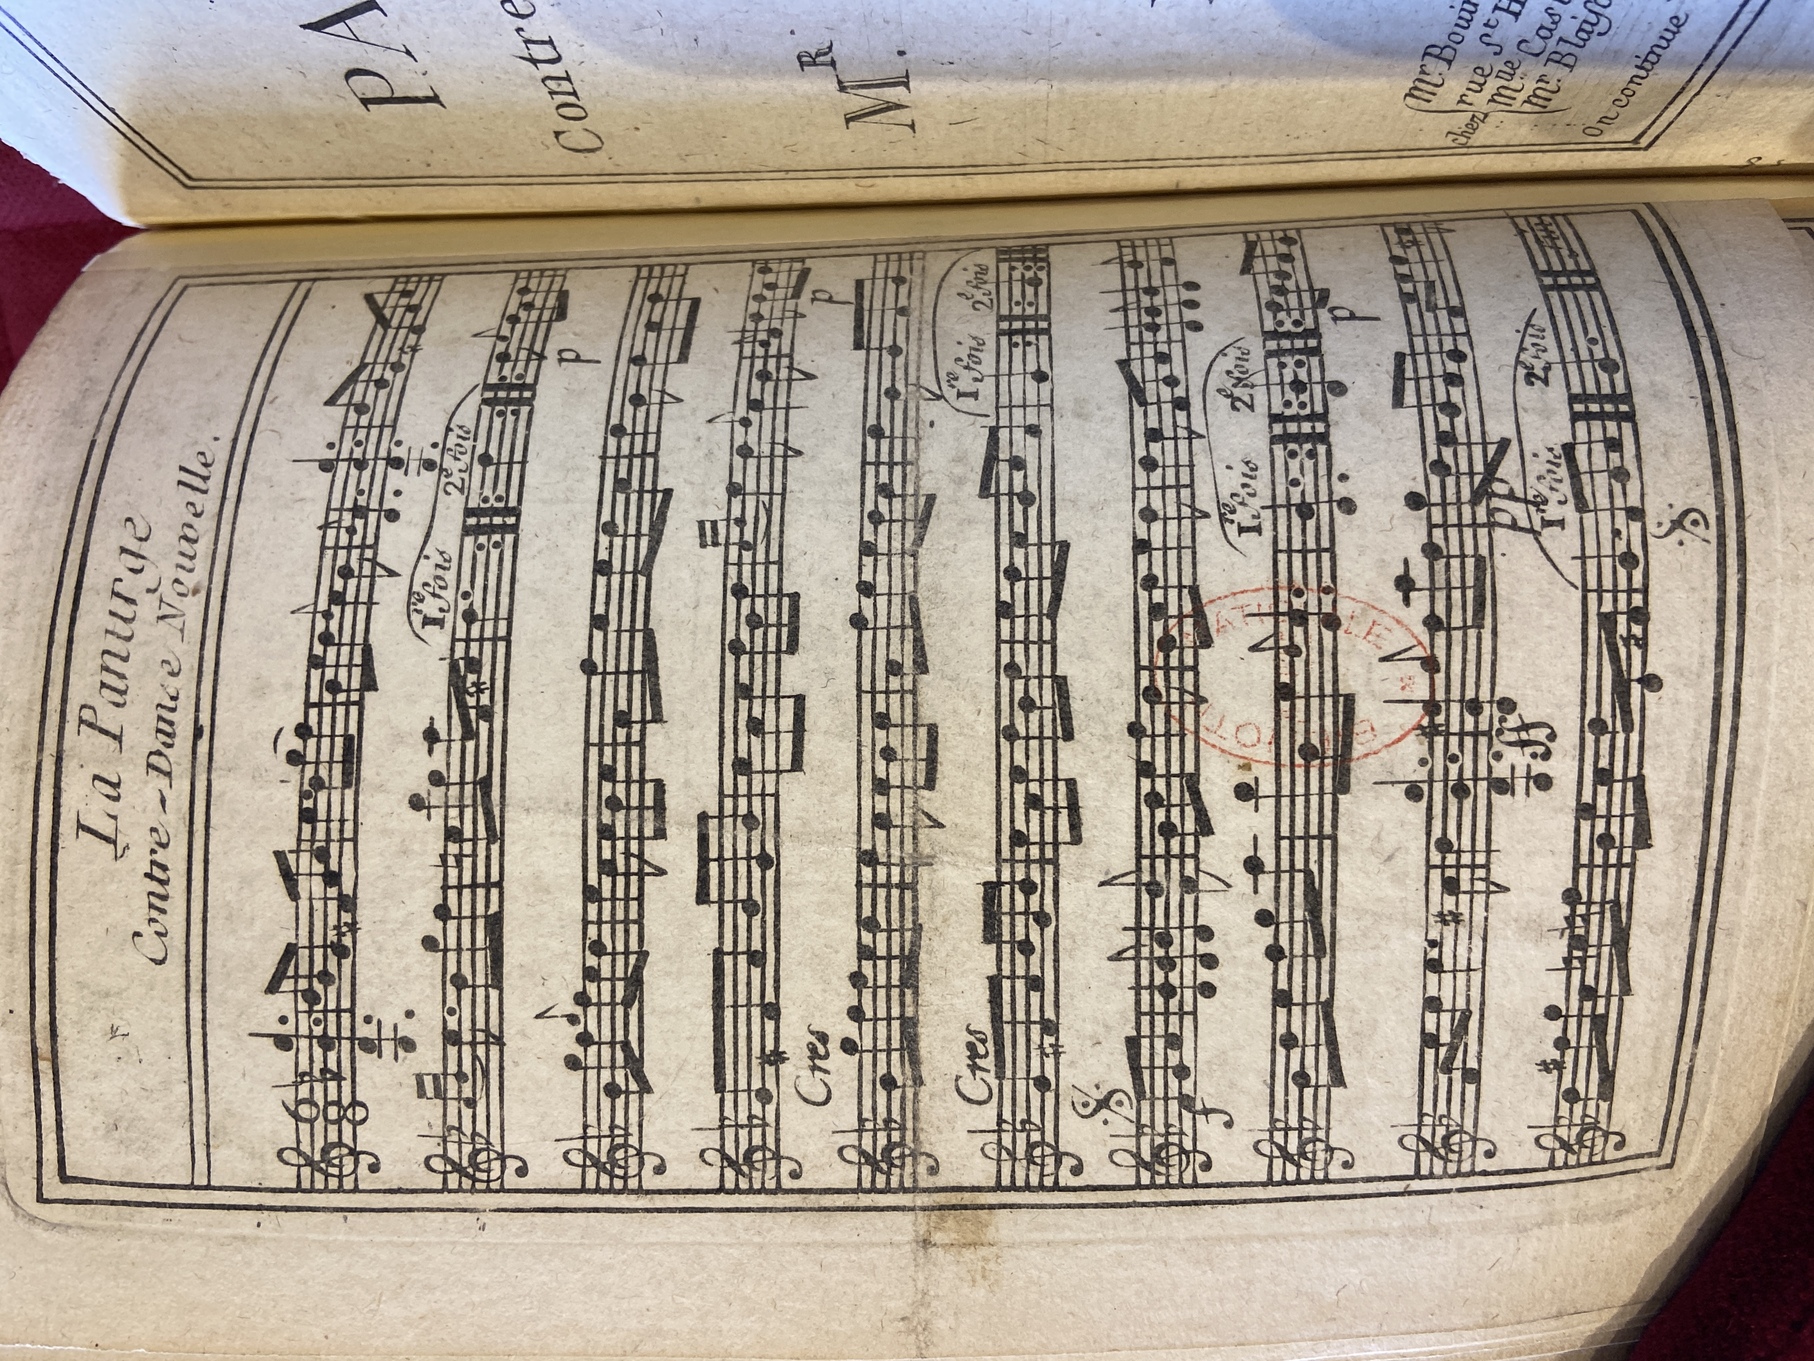 PA
Contre
MR.
Mr. Bouin
chez rue St H
Mlle Cast
Mr. Blaiso
On continue
La Panurge
Contre-Dance Nouvelle.
6
8
1re fois 2e fois
p
p
Cres
Cres
1re fois 2e fois
f
1re fois 2e fois
p
ff
pp
1re fois 2e fois